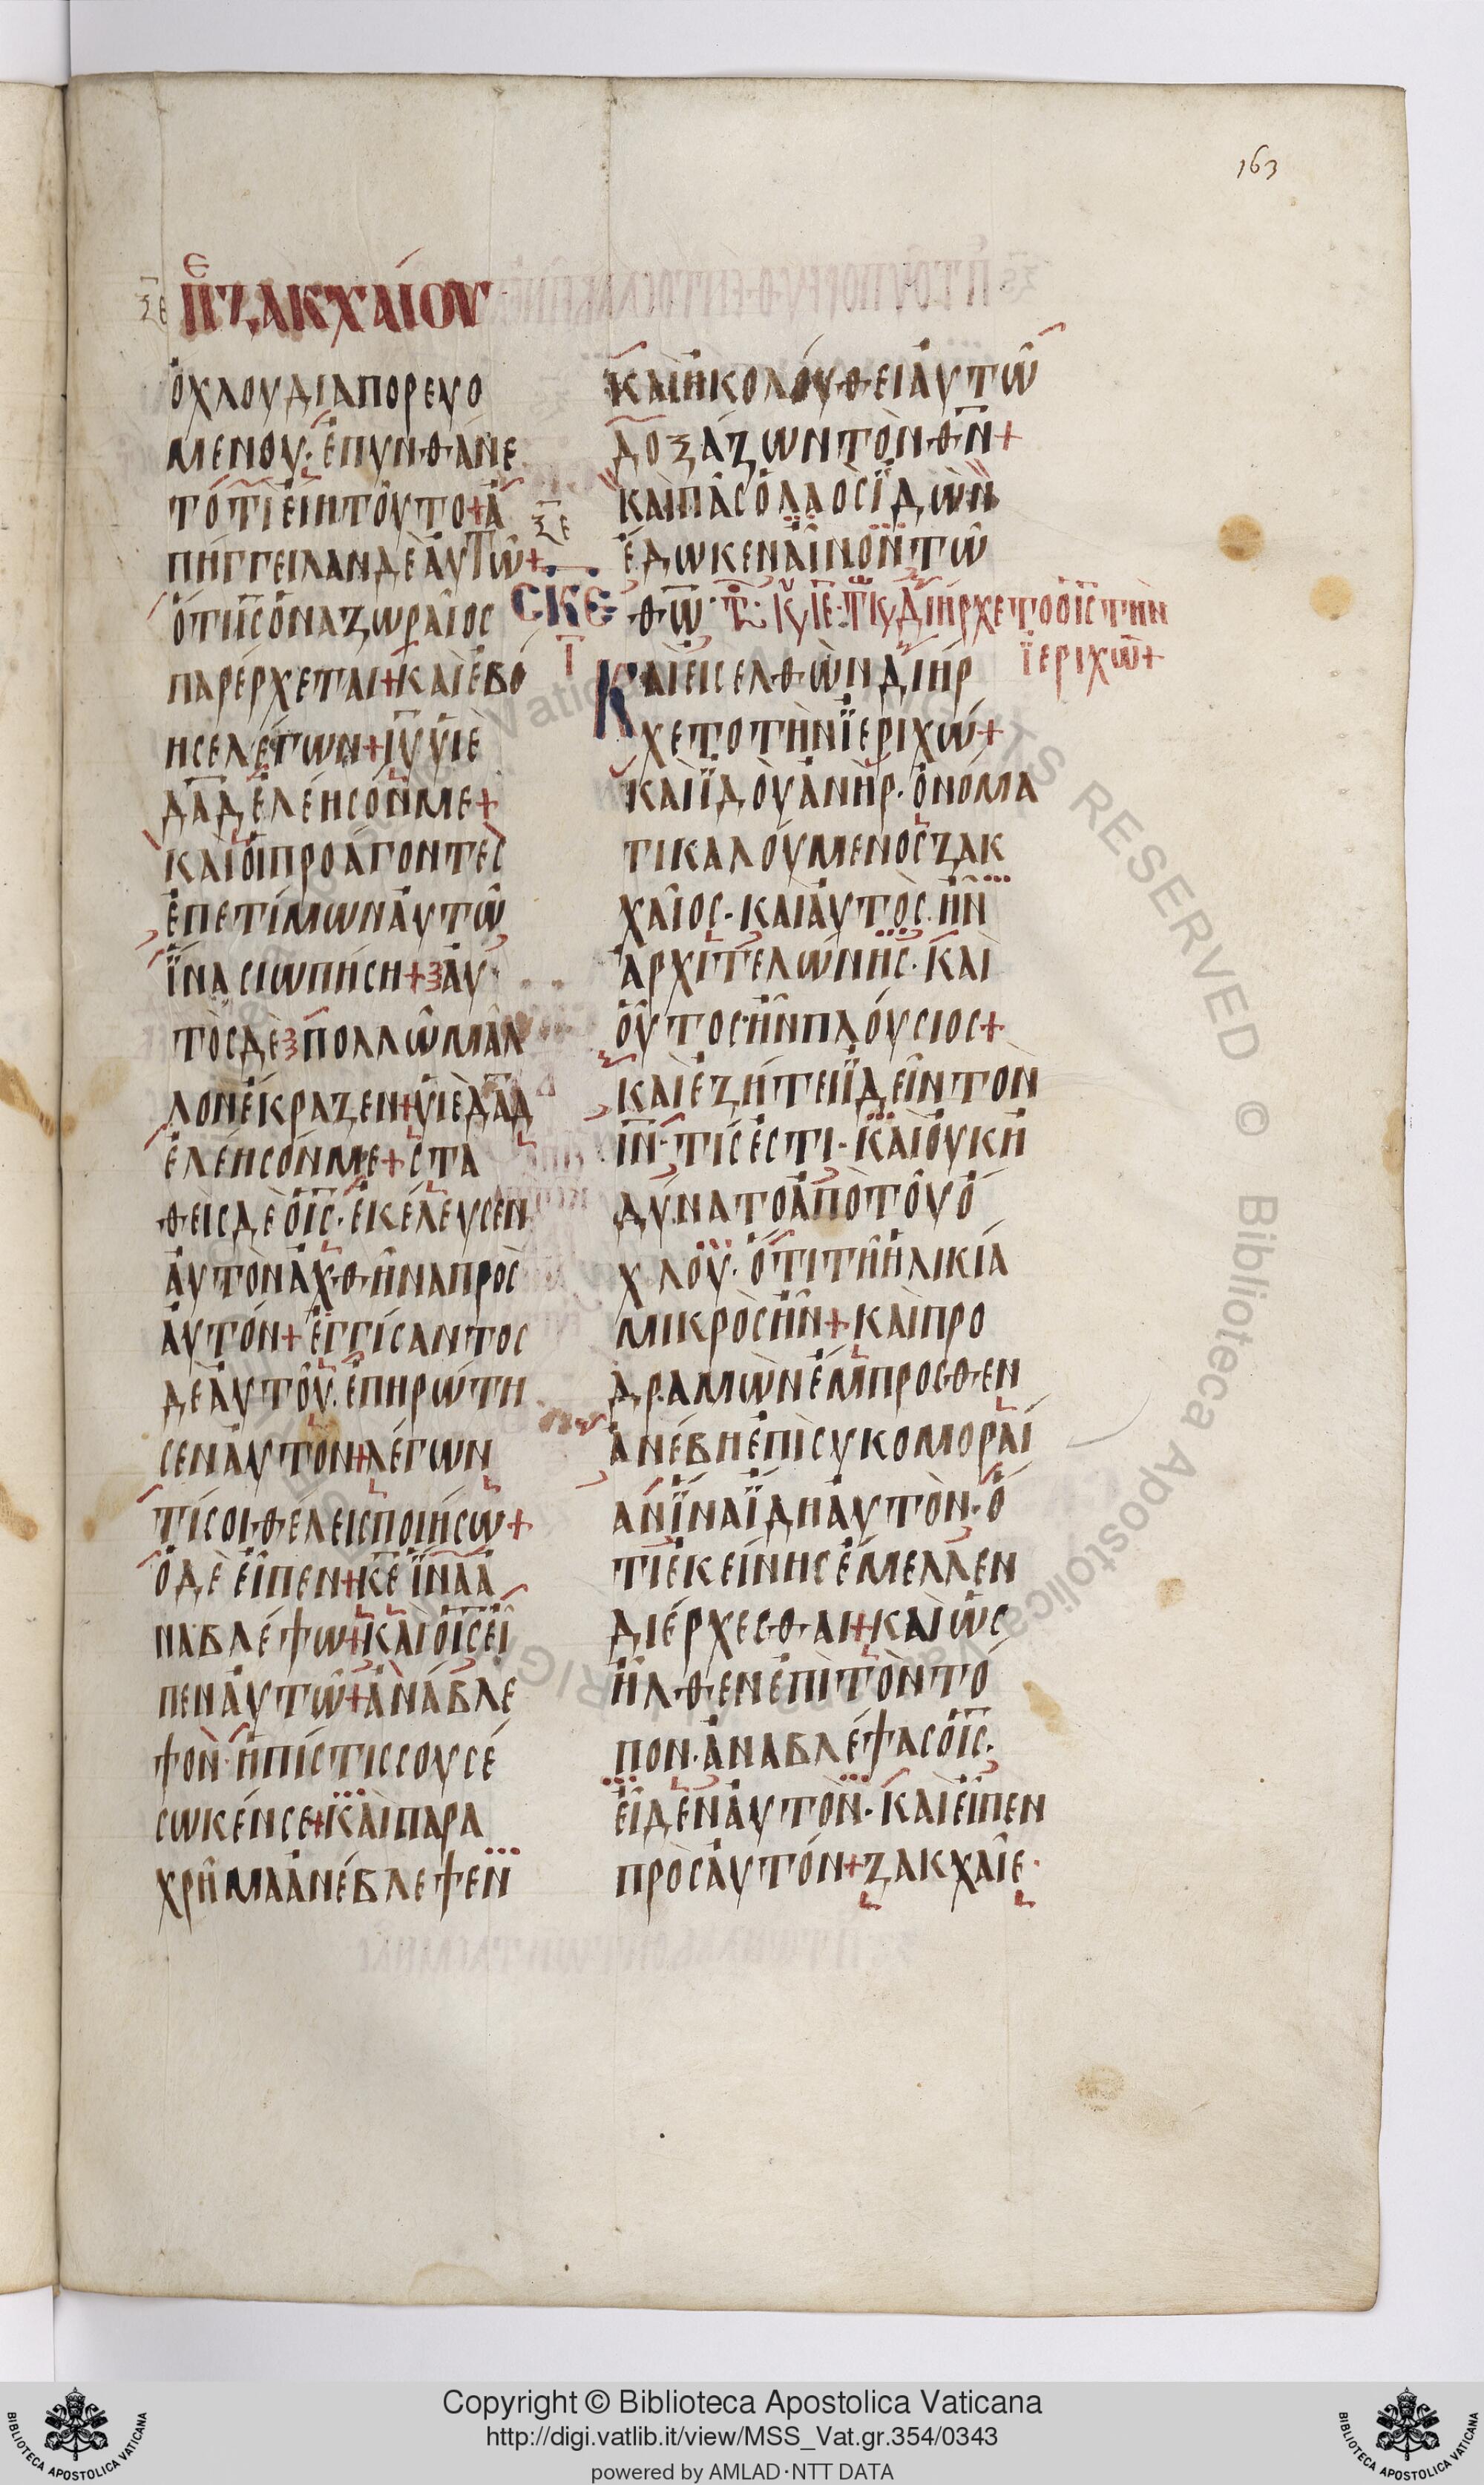 163
ξε Πε ΖΑΚΧΑΊΟΥ
ὀχλουδιαπορευο
μενου· ἐπυνθάνε
τό τί εἴη τοῦτο + ἀ
πήγγειλαν δὲ ἀυτῶ +
ὅτι ις ὁ ναζωραῖος
παρέρχεται + καὶ ἐβό
ησε λέγων + ιυ υἱὲ
δαδ ἐλέησόν με +
καὶ οἱ προάγοντες
ἐπετίμων ἀυτῶ
ἵνα σιωπήση + ἀυ
τὸς δὲ πολλῶ μᾶλ
λον ἔκραζεν + υἱὲ δαδ
ἐλέησόν με + στα
θεὶς δὲ ὁ ις· ἐκέλευσεν
ἀυτὸν ἀχθῆναι προς
ἀυτόν + ἐγγίσαντος
δὲ ἀυτοῦ· ἐπηρώτη
σεν ἀυτον + λέγων
τί σοι θέλεις ποιήσω +
ὁ δὲ εἶπεν + κε ἵνα ἀ
ναβλέψω + καὶ ὁ ις εἶ
πεν ἀυτῶ + ἀνάβλε
ψον· ἡ πίστις σου σέ
σωκέν σε + καὶ παρα
χρῆμα ἀνέβλεψεν
καὶ ἠκολόυθει ἀυτῶ
δοξάζων τὸν θν +
καὶ πᾶς ὁ λαὸς ἰδὼν
ξε ἔδωκεν αἶνον τῶ
σκε θω · τε κυιε· τκδιήρχετο ὁ ις τὴν
ϊεριχώ +
Καὶ εἰσελθὼν διήρ
χετο τὴν ϊεριχώ +
καὶ ϊδοὺ ἀνὴρ· ὀνόμα
τι καλούμενος ζακ
χαῖος· καὶ ἀυτὸς ἦν
ἀρχιτελώνης· καὶ
οὗτος ἦν πλόυσιος +
καὶ ἐζήτει ϊδεῖν τὸν
ιν· τίς ἐστι· καὶ ὀυκ ἠ
δύνατο ἀπὸ τοῦ ὄ
χλου· ὅτι τῆ ἡλικία
μικρὸς ἦν + καὶ προ
δραμὼν ἔμπροσθεν
ἀνέβη ἐπὶ συκομοραί
αν ϊνα ϊδη ἀυτὸν· ὅ
τι ἐκείνης ἔμελλεν
διέρχεσθαι + καὶ ὡς
ἦλθεν ἐπὶ τὸν τό
πον· ἀναβλέψας ὁ ις·
εἶδεν ἀυτὸν· καὶ εἶπεν
πρὸς ἀυτόν + ζακχαῖε·
Copyright © Biblioteca Apostolica Vaticana
http://digi.vatlib.it/view/MSS_Vat.gr.354/0343
powered by AMLAD·NTT DATA
BIBLIOTECA APOSTOLICA VATICANA
BIBLIOTECA APOSTOLICA VATICANA